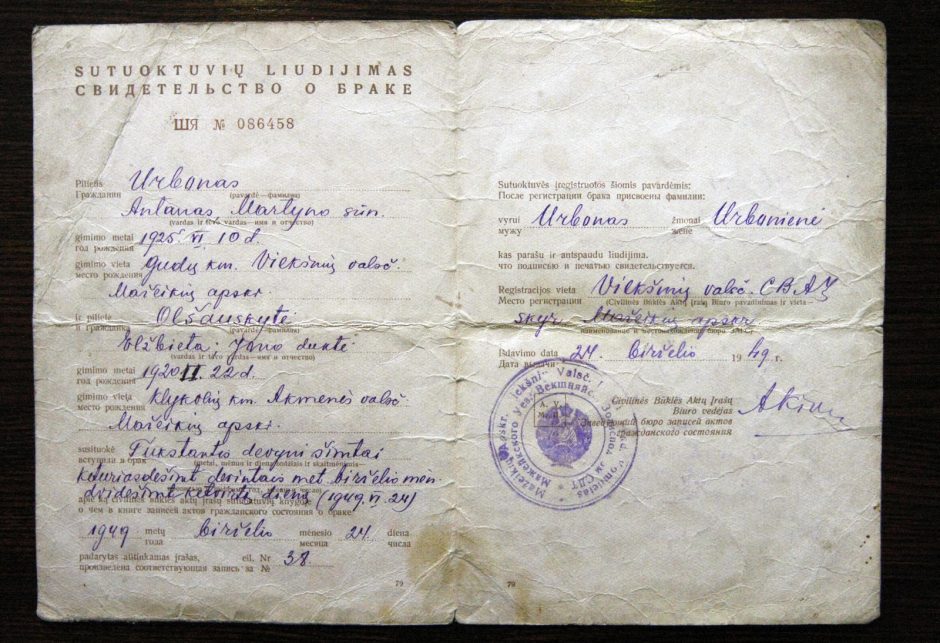 SUTUOKTUVIŲ LIUDIJIMAS
СВИДЕТЕЛЬСТВО О БРАКЕ
ШЯ № 086458
Pilietis Urbonas
Гражданин (pavardė—фамилия)
Antanas, Martyno sūn.
(vardas ir tėvo vardas—имя и отчество)
gimimo metai 1925. VI. 10 d.
год рождения
gimimo vieta Gudų km. Viekšnių valsč.
место рождения
Mažeikių apskr.
ir pilietė Olšauskytė
и гражданка (pavardė—фамилия)
Elžbieta, Jono duktė
(vardas ir tėvo vardas—имя и отчество)
gimimo metai 1920 II. 22 d.
год рождения
gimimo vieta Klykolių km. Akmenės valsč
место рождения
Mažeikių apskr.
susituokė Tūkstantis devyni šimtai
вступили в брак
keturiasdešimt devintais met. birželio mėn
dvidešimt ketvirtą dieną (1949. VI. 24)
apie ką civilinės būklės aktų įrašų sutuoktuvių knygoje
о чем в книге записей актов гражданского состояния о браке
1949 metų birželio mėnesio 24 diena
года месяца числа
padarytas atitinkamas įrašas, eil. Nr 38.
произведена соответствующая запись за №
79
Sutuoktuvės įregistruotos šiomis pavardėmis:
После регистрации брака присвоены фамилии:
vyrui Urbonas žmonai Urbonienė
мужу жене
kas parašu ir antspaudu liudijima.
что подписью и печатью свидетельствуется.
Registracijos vieta Viekšnių valsč. CBAĮ
Место регистрации (Civilinės Būklės Aktų Įrašų Biuro pavadinimas ir vieta—
skyr. Mažeikių apskr
наименование и местонахождение бюро ЗАГС)
Išdavimo data 24. birželio 1949 г.
Дата выдачи
Civilinės Būklės Aktų Įrašų
Biuro vedėjas
Заведующий бюро записей актов
гражданского состояния
79